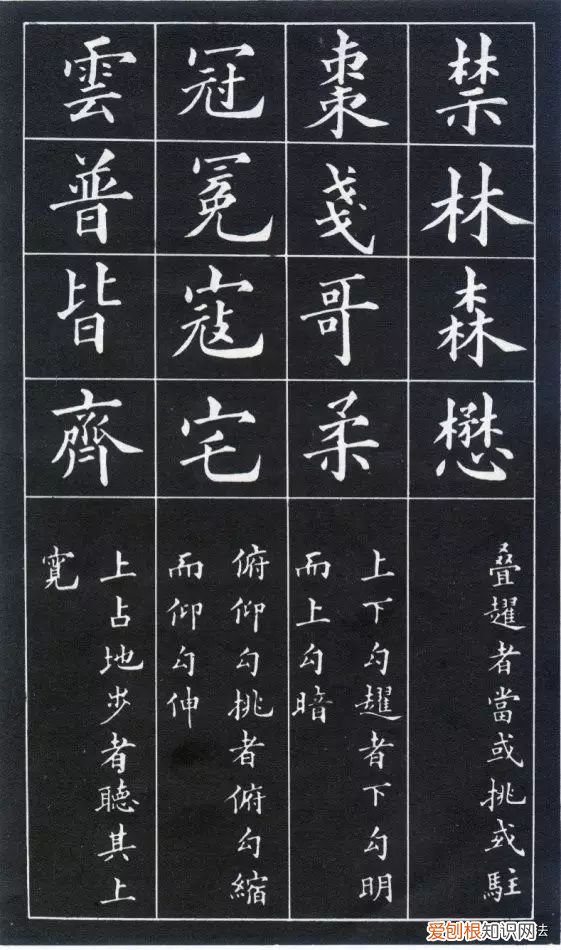 禁林森懋
叠趯者當或挑或駐
棗戔哥柔
上下勾趯者下勾明
而上勾暗
冠冕寇宅
俯仰勾挑者俯勾縮
而仰勾伸
雲普皆齊
上占地步者聽其上
寬
爱刨根知识网
法